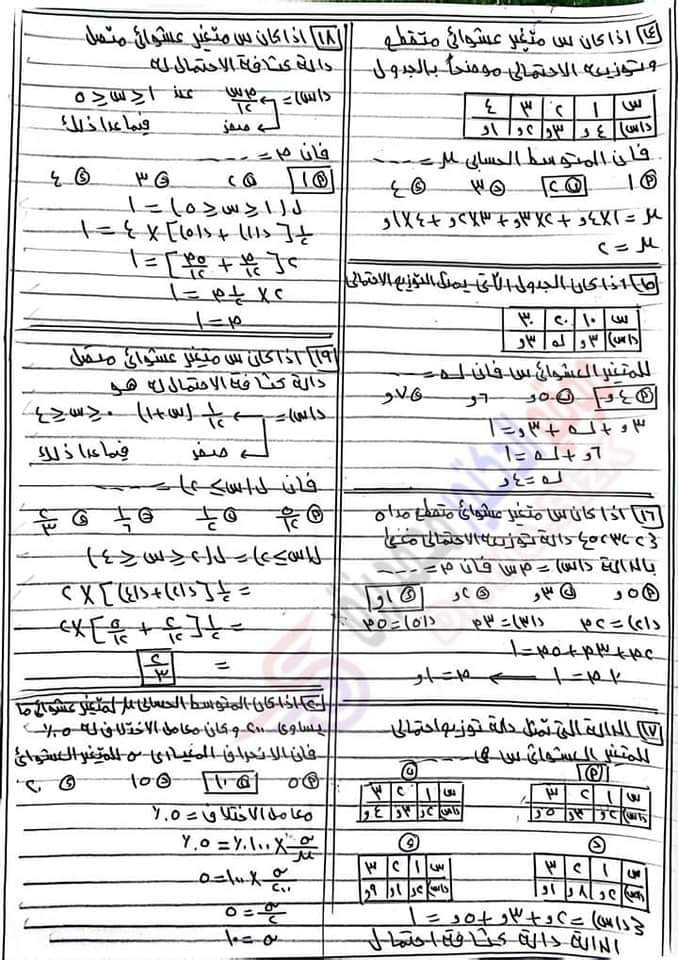 ١٤ اذا كان س متغير عشوائى متقطع
وتوزيعه الاحتمالى موضحاً بالجدول
س ١ ٢ ٣ ٤
د(س) ٤و ٣و ٢و ١و
فان المتوسط الحسابى μ = ----
أ ١ ب ٢ ج ٣ د ٤
μ = ١×٤و + ٢×٣و + ٣×٢و + ٤×١و
μ = ٢
١٥ اذا كان الجدول الآتى يمثل التوزيع الاحتمالى
س ١٠ ٢٠ ٣٠
د(س) ٣و ك ٣و
للمتغير العشوائى س فان ك = ----
أ ٤و ب ٥و ٦و د ٧و
٣و + ك + ٣و = ١
٦و + ك = ١
ك = ٤و
١٦ اذا كان س متغير عشوائى متقطع مداه
دالة توزيعه الاحتمالى معطى
بالدالة د(س) = م س فان م = ----
أ ٥و ب ٣و ج ٢و د ١و
د(٢) = ٢م د(٣) = ٣م د(٥) = ٥م
٢م + ٣م + ٥م = ١
م = ١و
١٧ الدالة التى تمثل دالة توزيع احتمالى
للمتغير العشوائى س هى ----
أ
س ١ ٢ ٣
د(س) ٢و ٣و ٥و
ب
س ١ ٢ ٣
د(س) ٢و ٣و ٤و
ج
س ١ ٢ ٣
د(س) ٢و ٨و ١و
د
س ١ ٢ ٣
د(س) ٢و ١و ٩و
د(س) = ٢و + ٣و + ٥و = ١
الدالة دالة كثافة احتمال
١٨ اذا كان س متغير عشوائى متصل
دالة كثافة الاحتمال له
د(س) = م س/١٢ عند ١ ≤ س ≤ ٥
صفر فيما عدا ذلك
فان م = ----
أ ١ ب ٢ ج ٣ د ٤
ل(١ ≤ س ≤ ٥) = ١
١/٢ [د(١) + د(٥)] × ٤ = ١
٢ [م/١٢ + ٥م/١٢] = ١
٢ × ١/٢ م = ١
م = ١
١٩ اذا كان س متغير عشوائى متصل
دالة كثافة الاحتمال له هو
د(س) = ١/١٢ (س+١) ٠ ≤ س ≤ ٤
صفر فيما عدا ذلك
فان ل(س ≥ ٢) = ----
أ ٥/١٢ ب ١/٢ ج ١/٦ د ٢/٣
ل(س ≥ ٢) = ل(٢ ≤ س ≤ ٤)
= ١/٢ [د(٢) + د(٤)] × ٢
×٢
= ٢/٣
٢٠ اذا كان المتوسط الحسابى μ لمتغير عشوائى ما
يساوى ٢٠٠ وكان معامل الاختلاف له ٥٪
فان الانحراف المعيارى σ للمتغير العشوائى
أ ٥ ب ١٠ ج ١٥ د ٢٠
معامل الاختلاف = ٥٪
σ/μ × ١٠٠٪ = ٥٪
σ/٢٠٠ × ١٠٠ = ٥
σ/٢ = ٥
σ = ١٠